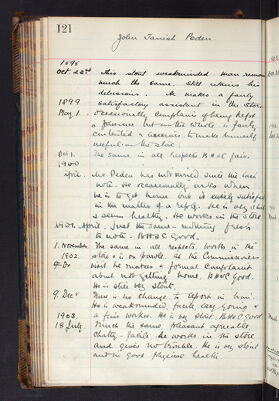 121
John Tanish Peden
1898
Oct. 22nd This stout weakminded man remains
much the same. Still retains his
delusions. He makes a fairly
1899 satisfactory assistant in the store.
May 1. Occasionally complains of being kept
a prisoner but on the whole is fairly
contented & anxious to make himself
useful in the store
Oct 1. The same in all respects B.H. & C fair.
1900
April. Mr Peden has not varied since the last
note. He occasionally asks when
he is to get home but is easily satisfied
in the matter of a reply. He is very stout
& seems healthy. He works in the store
1901. April. Just the same - nothing fresh
to note - B.H & C Good.
1. November The same in all respects. Works in the
1902. store & is on parole. At the Commissioners
visit he makes a formal complaint
about not getting home. B.H & C Good.
He is still very stout.
9. Dec There is no change to report in him.
He is weakminded, facile, easy going &
1903 a fair worker. He is very stout. B.H & C Good
18 July. Much the same, pleasant, agreeable
chatty - facile. He works in the store
and gives no trouble. He is very stout
and in good physical health.